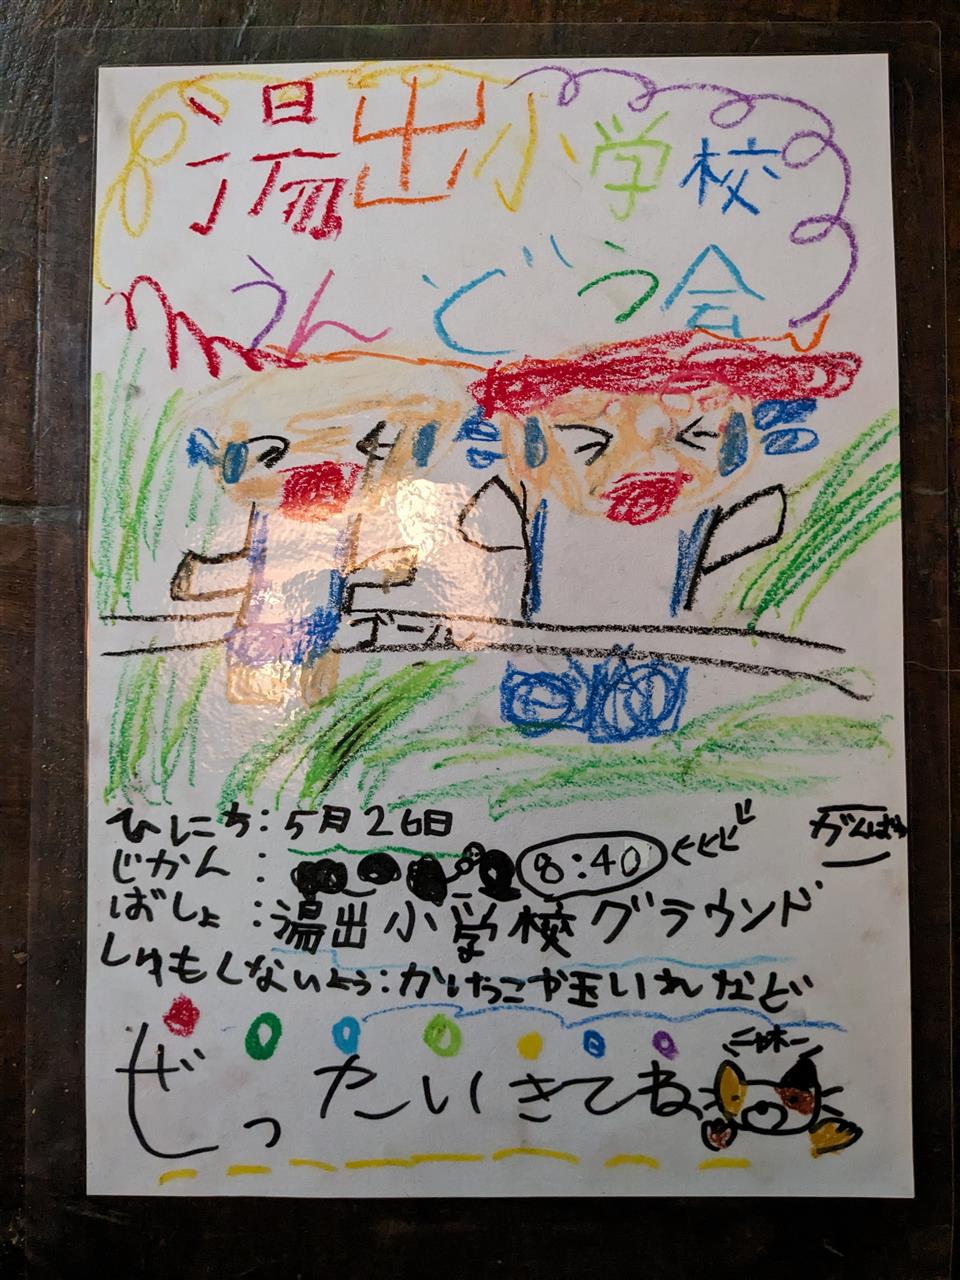 湯出小学校
うんどう会
ゴール
ひにち:5月26日
じかん: 8:40
がんばろ
ばしょ:湯出小学校グラウンド
しゅもくないよう:かけっこや玉いれなど
ぜったいきてね